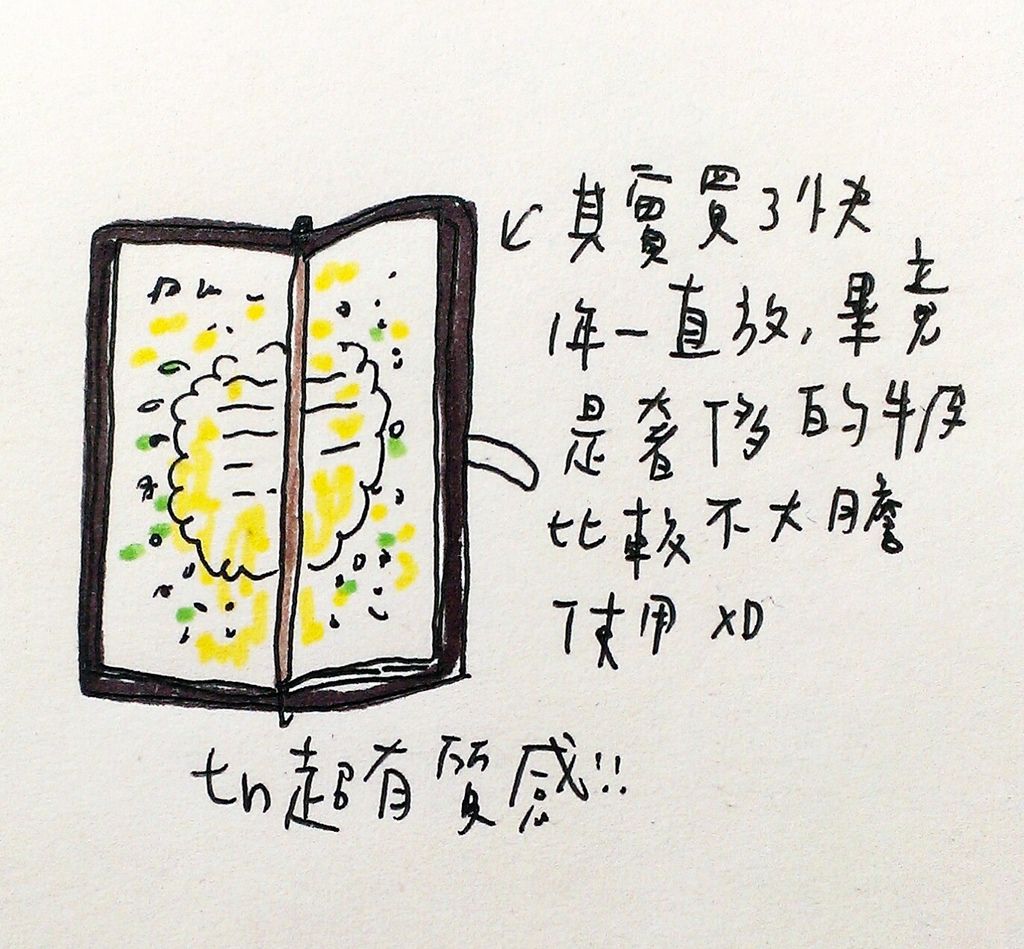 其實買了快
1年一直放,畢竟
是奢侈的牛皮
比較不大膽
使用 XD
tn超有質感!!